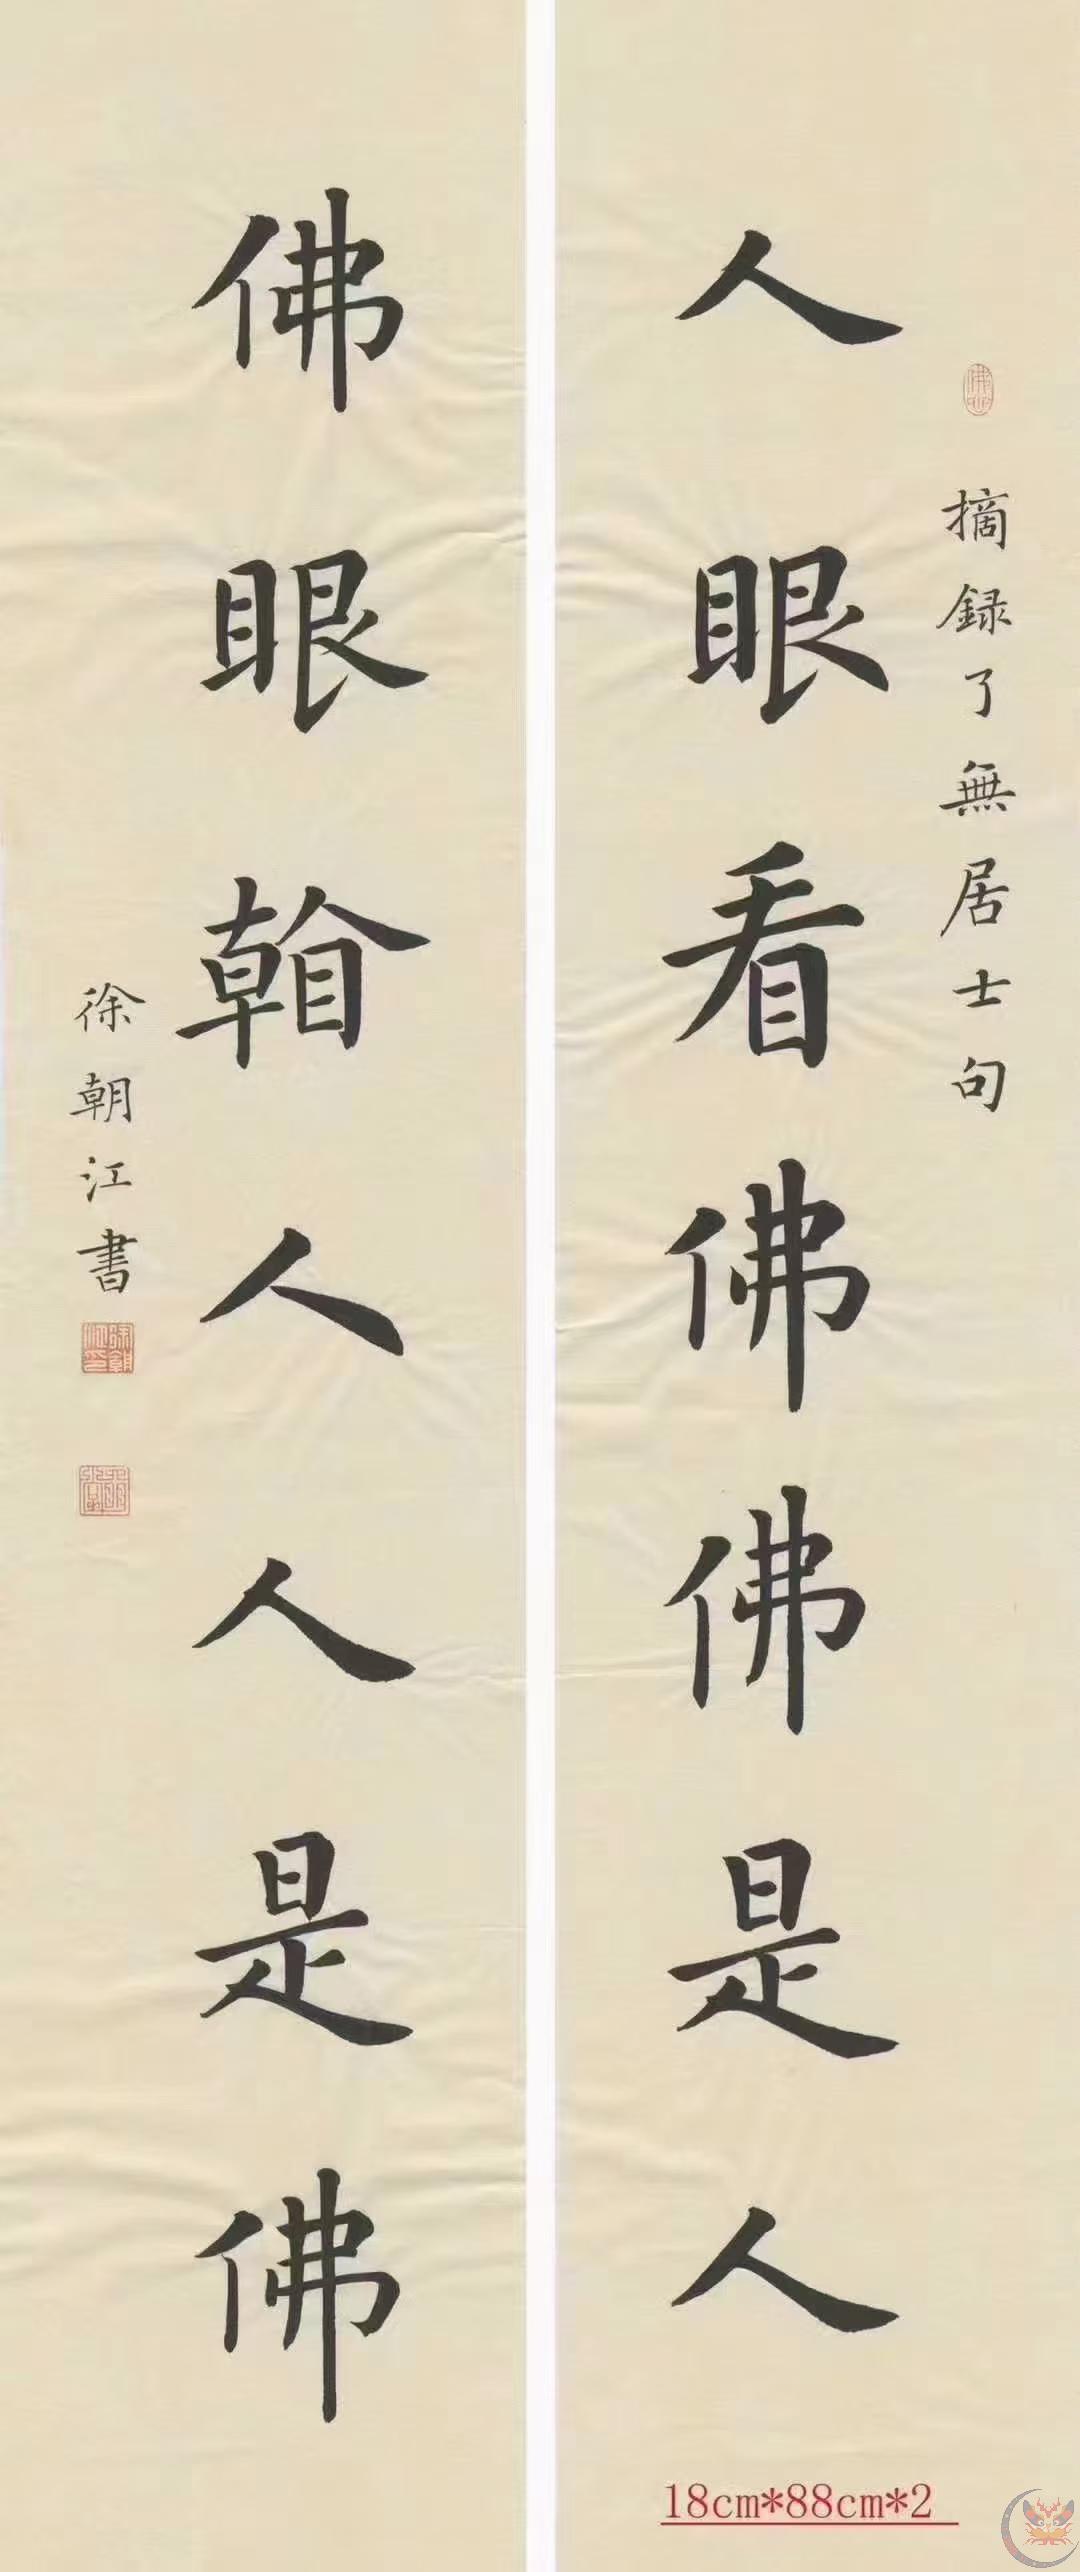 摘録了無居士句
人眼看佛佛是人
佛眼人人是佛
徐朝江書
徐朝江印
18cm*88cm*2